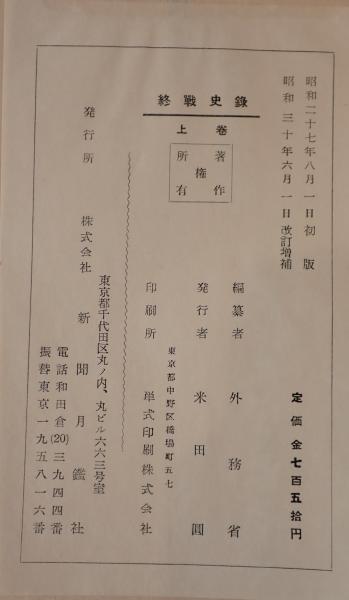 昭和二十七年八月一日初版
昭和三十年六月一日改訂増補
定価金七百五拾円
終戰史錄
上巻
著作
権
所有
編纂者 外務省
発行者 米田圓
東京都中野区橋場町五七
印刷所 単式印刷株式会社
東京都千代田区丸ノ内、丸ビル六六三号室
発行所 株式会社 新聞月鑑社
電話和田倉(20)三九四四番
振替東京一九五八一六番